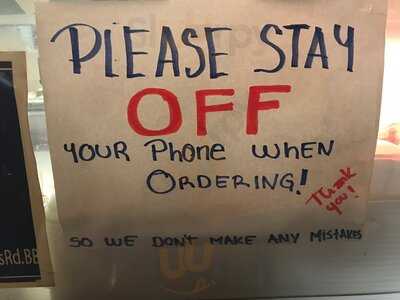 PLEASE STAY
OFF
YOUR Phone WHEN
ORDERING!
Thank
you!
SO WE DON'T MAKE ANY MISTAKES
sRd.BB